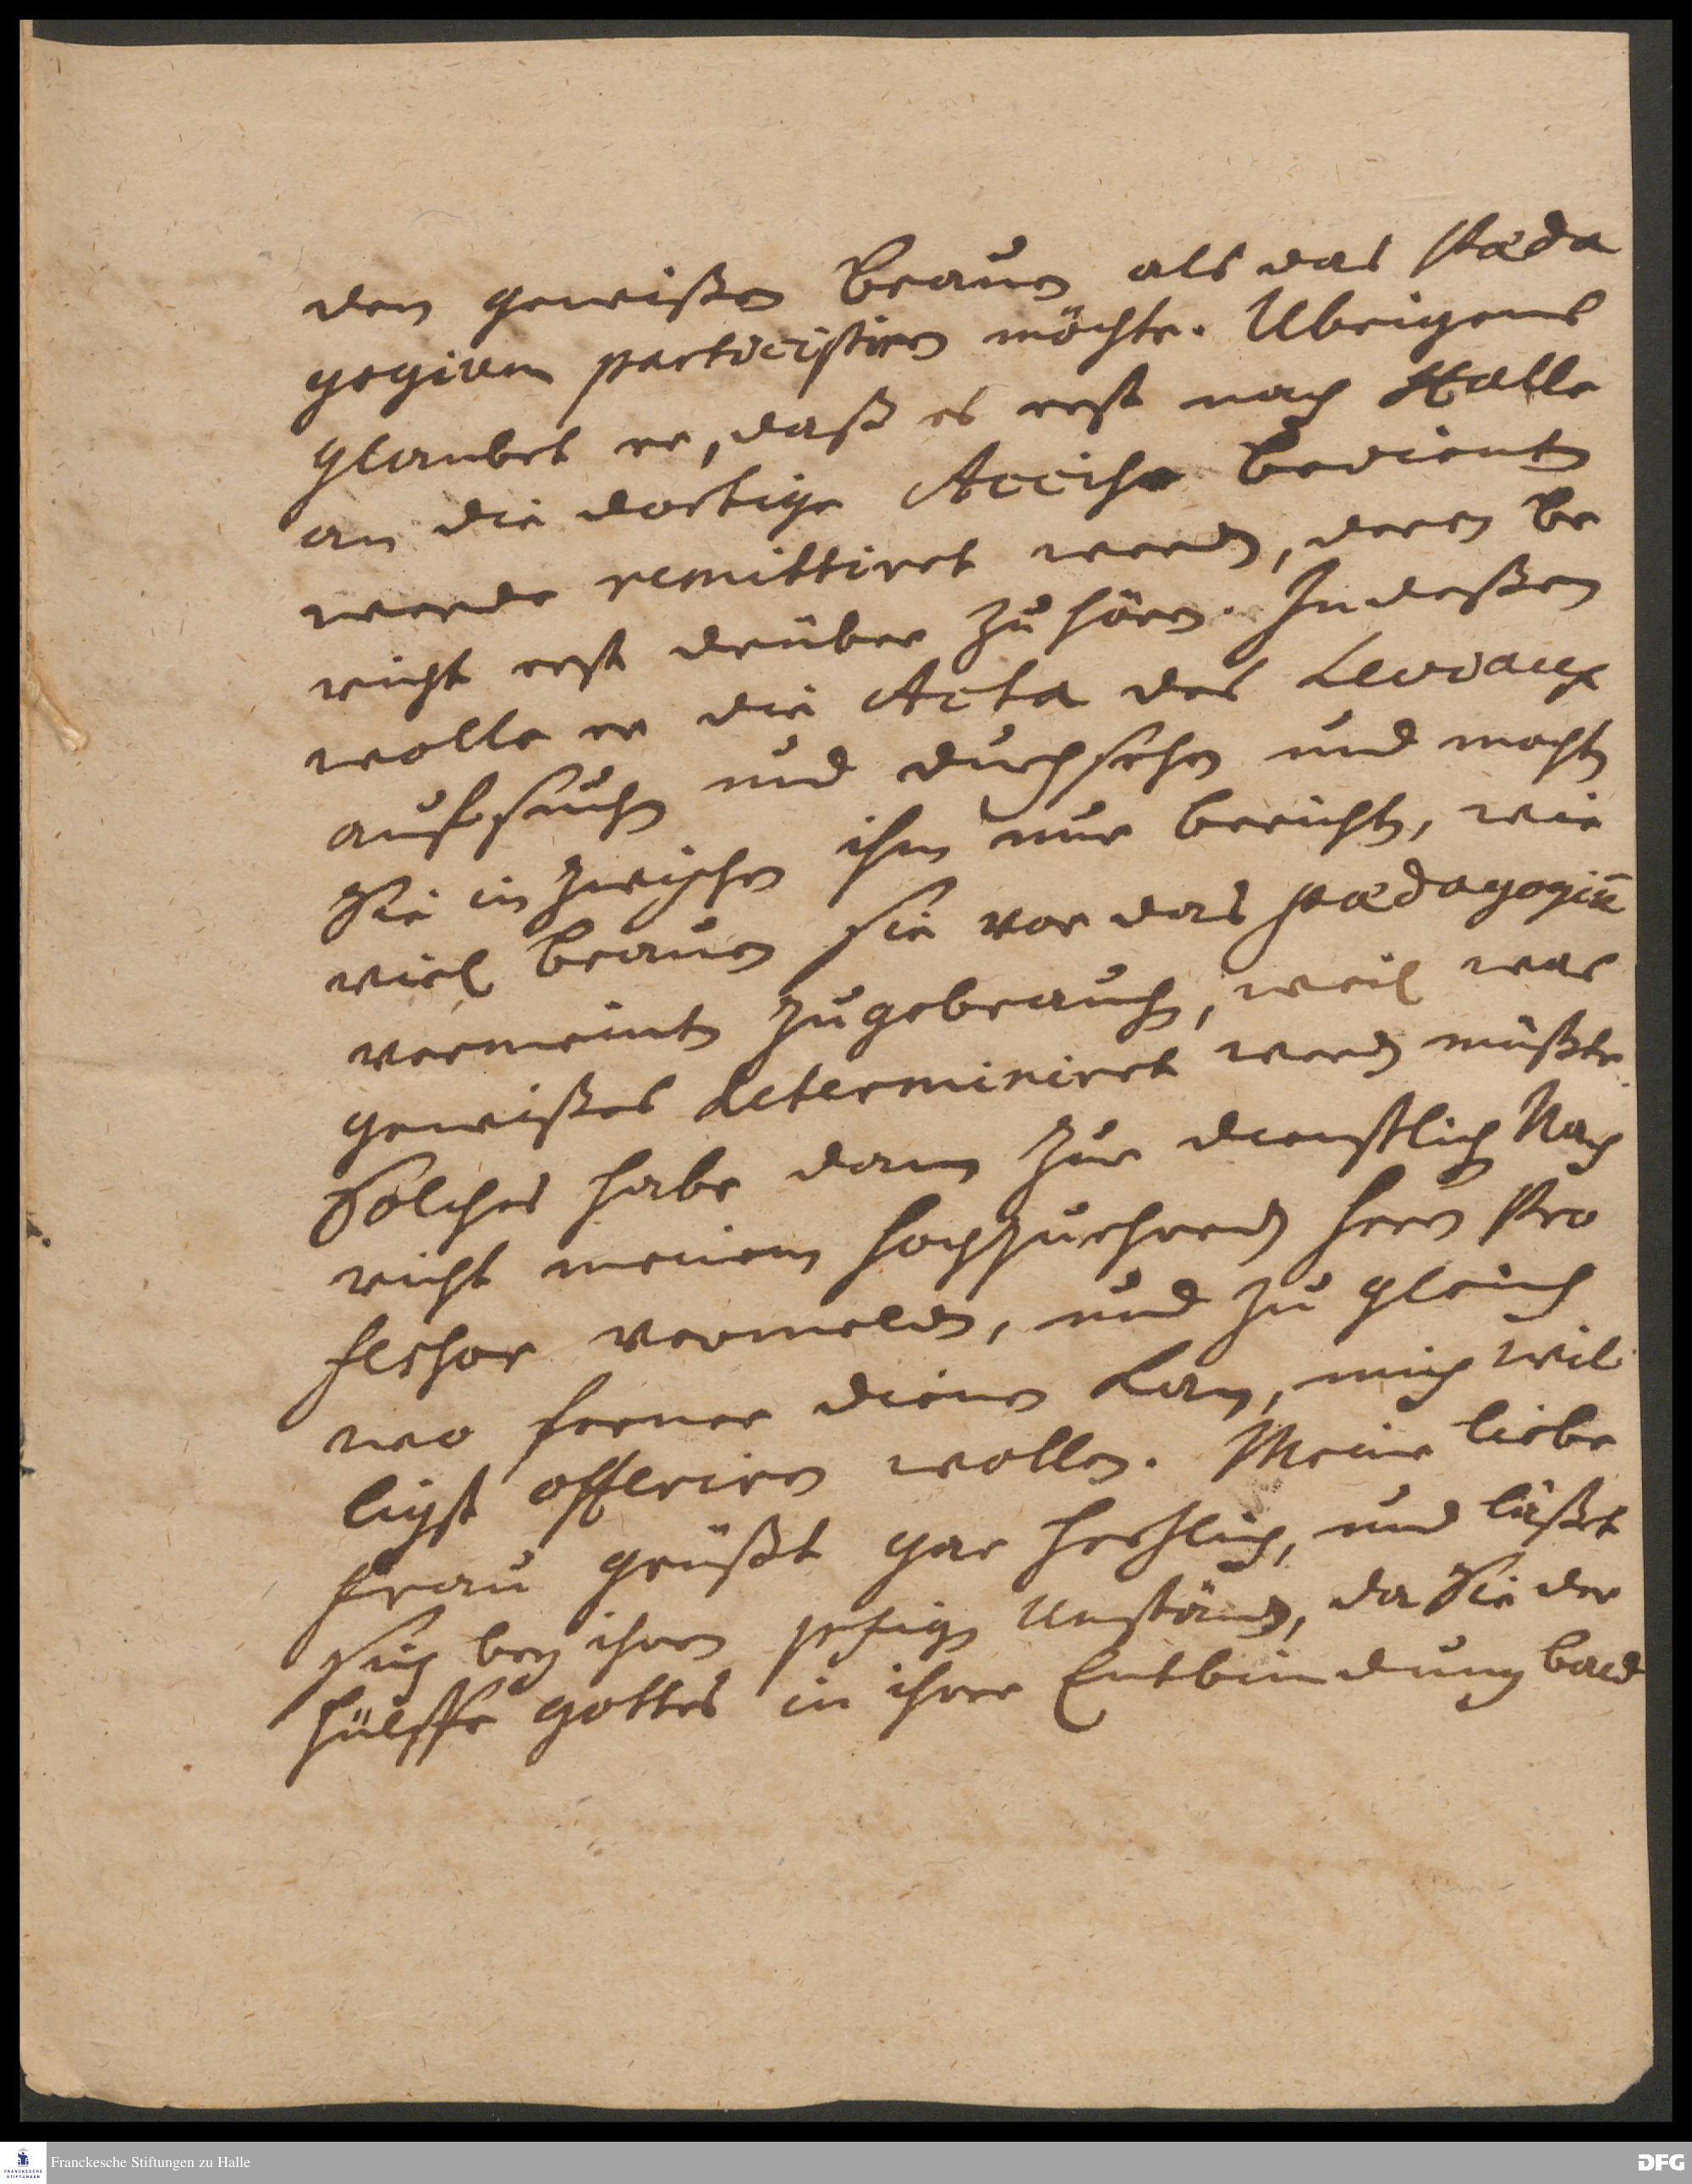 den gewißen Brauen als das Pæda
gogium participiren möchte. Ubrigens
glaubet er, daß es erst nach Halle
an die dortige Accise Bedienten
werde remittiret werden, deren Be
richt erst drüber zu hören. Indeßen
wolle er die Acta des
aufsuchen und durchsehen und mochten
Sie in zwischen ihm nur berichten, wie
viel Brauen sie vor das Pædagogiū
vermeinten zugebrauchen, weil was
gewißes determiniret werden müßte.
Solches habe dann zur dienstlichen Nach
richt meinem hochzuehrenden Herrn Pro
fessor vermelden, und zu gleich
wo ferner dienen kan, mich wil
ligst offeriren wollen. Meine liebe
Frau grüßet gar hertzlich, und läßet
sich bey ihren jetzigen Umständen, da Sie der
Hülffe Gottes in ihrer Entbindung bald
Franckesche Stiftungen zu Halle
DFG